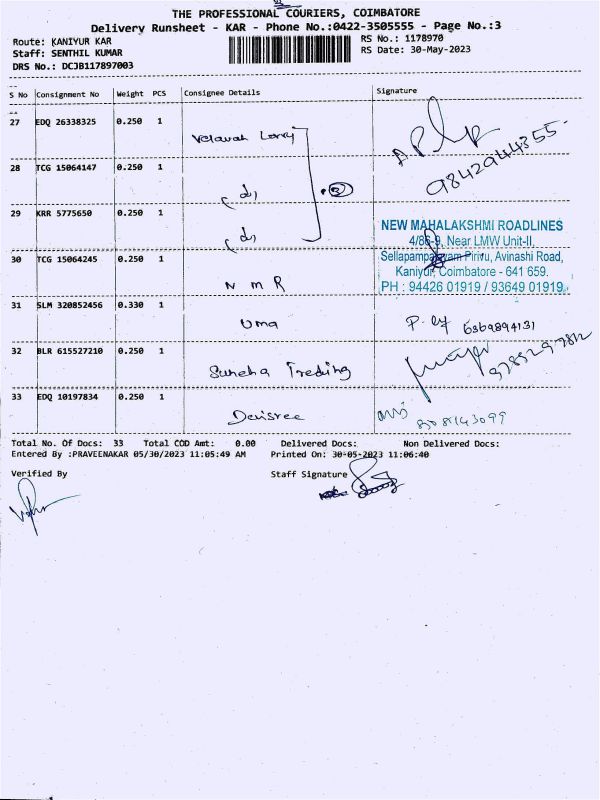 THE PROFESSIONAL COURIERS, COIMBATORE
Delivery Runsheet - KAR - Phone No.:0422-3505555 - Page No.:3
Route: KANIYUR KAR
RS No.: 1178970
Staff: SENTHIL KUMAR
RS Date: 30-May-2023
DRS No.: DCJB117897003
S No Consignment No Weight PCS Consignee Details Signature
27 EDQ 26338325 0.250 1
9842944355
28 TCG 15064147 0.250 1
29 KRR 5775650 0.250 1
NEW MAHALAKSHMI ROADLINES
4/86-9, Near LMW Unit-II,
Sellapampalayam Pirivu, Avinashi Road,
Kaniyur, Coimbatore - 641 659.
PH : 94426 01919 / 93649 01919
30 TCG 15064245 0.250 1 N M R
31 SLM 320852456 0.330 1 Uma
6369894131
32 BLR 615527210 0.250 1
33 EDQ 10197834 0.250 1 Devisree
Total No. Of Docs: 33 Total COD Amt: 0.00 Delivered Docs: Non Delivered Docs:
Entered By :PRAVEENAKAR 05/30/2023 11:05:49 AM Printed On: 30-05-2023 11:06:40
Verified By Staff Signature